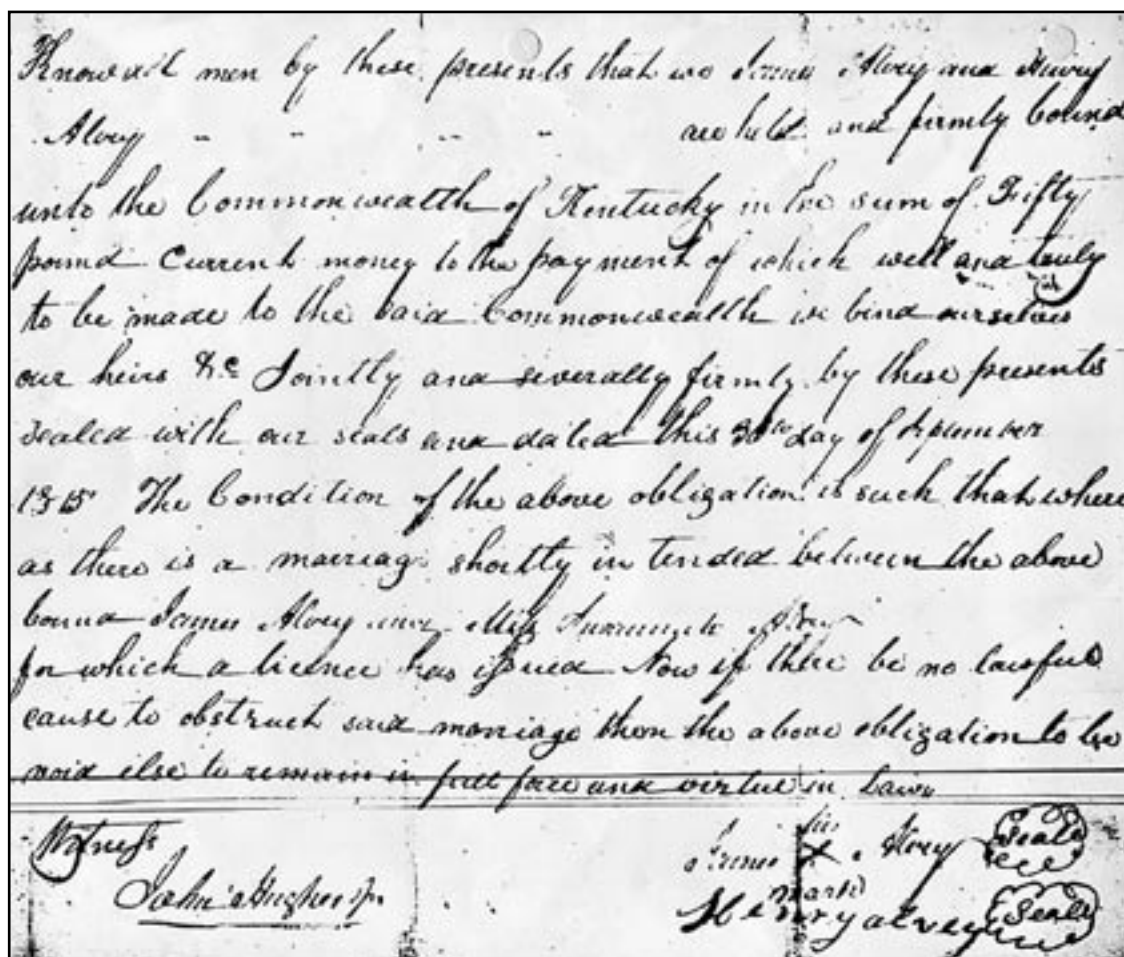 Know all men by these presents that we James Alvey and Henry
Alvey " " " " are held and firmly bound
unto the Commonwealth of Kentucky in the sum of Fifty
pound Current money to the payment of which well and truly
to be made to the said Commonwealth we bind ourselves
our heirs &c Jointly and severally firmly by these presents
sealed with our seals and dated this 30th day of
1815 The Condition of the above obligation is such that where
as there is a marriage shortly in tended between the above
bound James Alvey and Miss Alvey
for which a licence has issued Now if there be no lawful
cause to obstruct said marriage then the above obligation to be
void else to remain in full force and virtue in Law
Witness
John Hughes Jr
his
James X Alvey Seal
mark
Henry alvey Seal